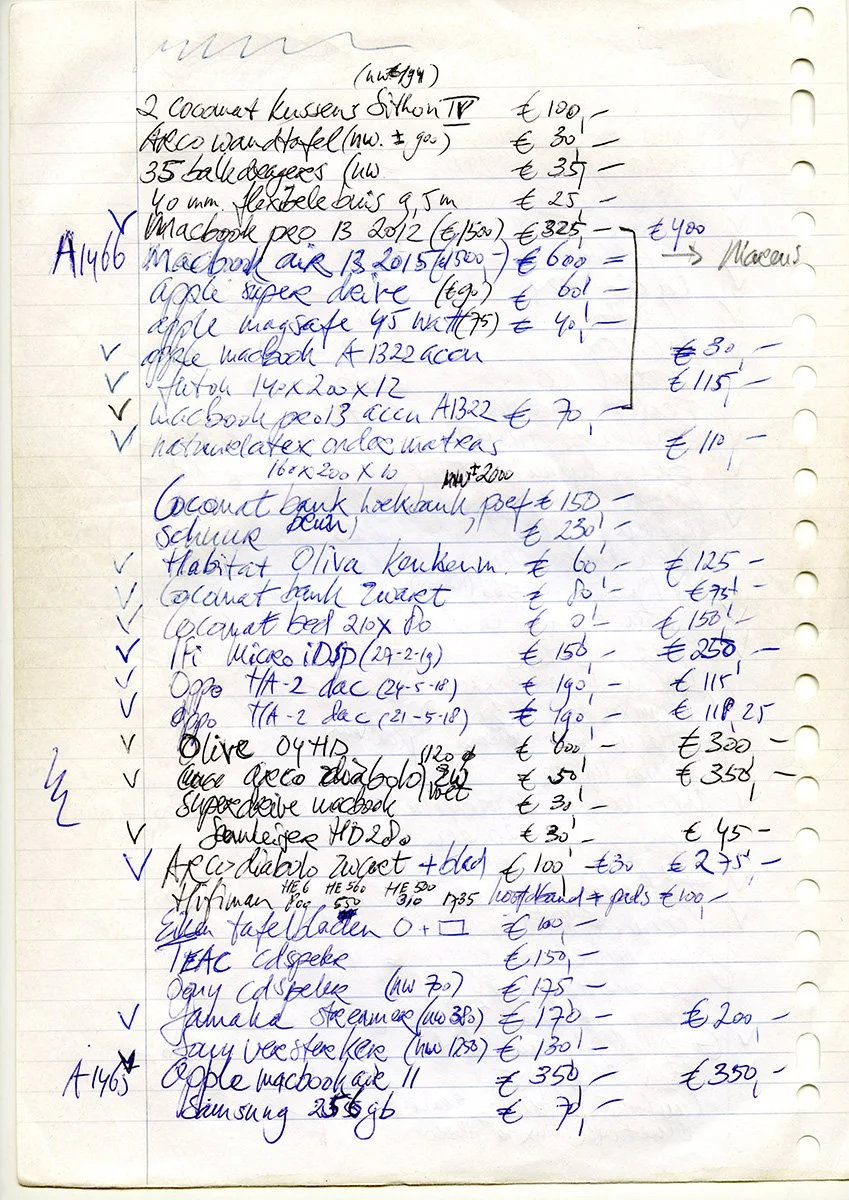 2 Cocomat kussens Sithon IV € 100,-
Arco wandtafel (nw. ± 900) € 30,-
35 balkdragers (nw. € 35,-
40 mm flexibele buis 9,5m € 25 -
Macbook pro 13 2012 (€1500) € 325,- €400
A1466 Macbook air 13 2015 (€1500,-) € 600 =
apple super drive (€90) € 60,-
apple magsafe 45 watt (75) € 40,-
apple macbook A1322 accu € 30,-
futon 140x200x12 € 115,-
macbook pro 13 accu A1322 € 70,-
natuurlatex onder matras € 110,-
160x200x10
nw ± 2000
Cocomat bank hoekbank, poef € 150 -
schuur € 230,-
Habitat Oliva keukenm. € 60,- € 125 -
Cocomat bank zwart € 80,- € 75,-
Cocomat bed 210x80 € 0,- € 150,-
Ifi micro iDSD (27-2-19) € 150,- € 250,-
Oppo HA-2 dac (24-5-18) € 190,- € 115,-
Oppo HA-2 dac (21-5-18) € 190,- € 118,25
Olive O4HD € 400,- € 300 -
arco diabolo € 50,- € 350,-
superdrive macbook € 30,-
Sennheiser HD280 € 30,- € 45 -
Arco diabolo zwart + blad € 100,- €30 € 275,-
Hifiman HE6 HE560 550 HE500 310 1735 hoofdband + pads € 100,-
Eiken tafelbladen € 100,-
TEAC cdspeler € 150,-
Sony cdspeler (nw 700) € 175 -
Yamaha streamer (nw 380) € 170 - € 200,-
Sony versterker (nw 1250) € 130,-
A1465 Apple macbook air 11 € 350,- € 350,-
Samsung 256 gb € 70,-